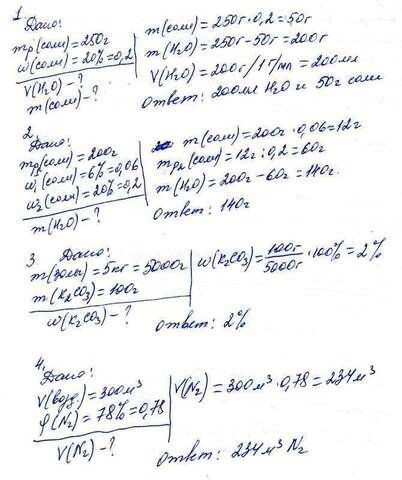 1
Дано:
mр(соли)=250г
w(соли)=20%=0,2
V(H2O)-?
m(соли)-?
m(соли)=250г·0,2=50г
m(H2O)=250г-50г=200г
V(H2O)=200г/1г/мл=200мл
Ответ: 200мл H2O и 50г соли
2.
Дано:
mр(соли)=200г
w1(соли)=6%=0,06
w2(соли)=20%=0,2
m(H2O)-?
m(соли)=200г·0,06=12г
mр2(соли)=12г:0,2=60г
m(H2O)=200г-60г=140г.
Ответ: 140г
3 Дано:
m(золы)=5кг=5000г
m(K2CO3)=100г
w(K2CO3)-?
w(K2CO3)=100г/5000г·100%=2%
Ответ: 2%
4.
Дано:
V(возд.)=300м³
φ(N2)=78%=0,78
V(N2)-?
V(N2)=300м³·0,78=234м³
Ответ: 234м³ N2